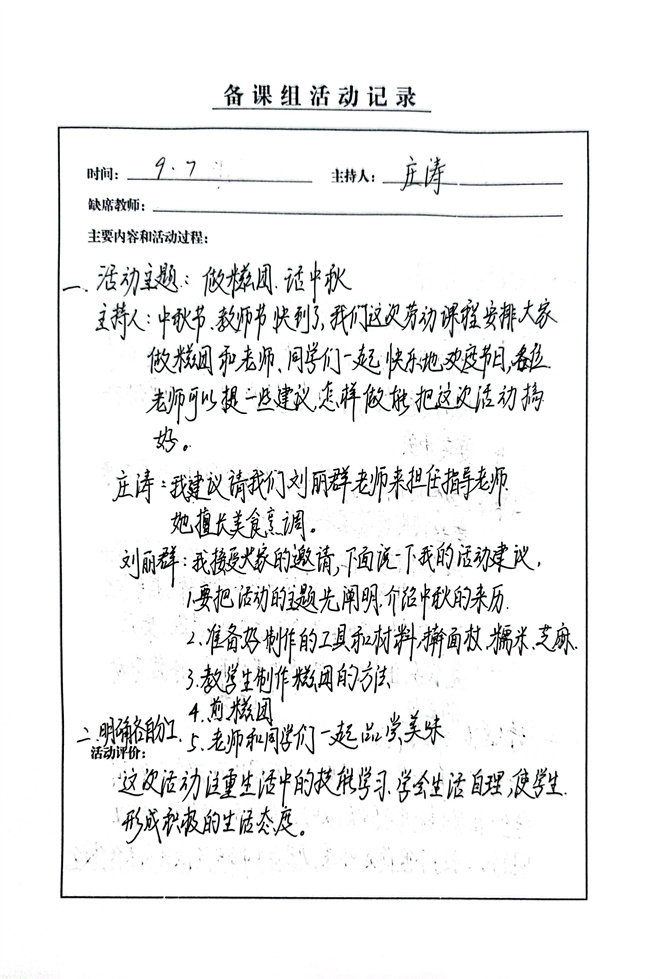 备课组活动记录
时间: 9.7 主持人: 庄涛
缺席教师:
主要内容和活动过程:
一、活动主题: 做糍团.话中秋
主持人: 中秋节、教师节快到了,我们这次劳动课程安排大家
做糍团和老师、同学们一起快乐地欢度节日,各位
老师可以提一些建议,怎样做能把这次活动搞
好。
庄涛: 我建议请我们刘丽群老师来担任指导老师
她擅长美食烹调。
刘丽群: 我接受大家的邀请,下面说一下我的活动建议,
1.要把活动的主题先阐明.介绍中秋的来历.
2.准备好制作的工具和材料,擀面杖、糯米、芝麻.
3.教学生制作糍团的方法
4.煎糍团
二、明确各自分工. 5.老师和同学们一起品尝美味
活动评价:
这次活动注重生活中的技能学习、学会生活自理,使学生
形成积极的生活态度。